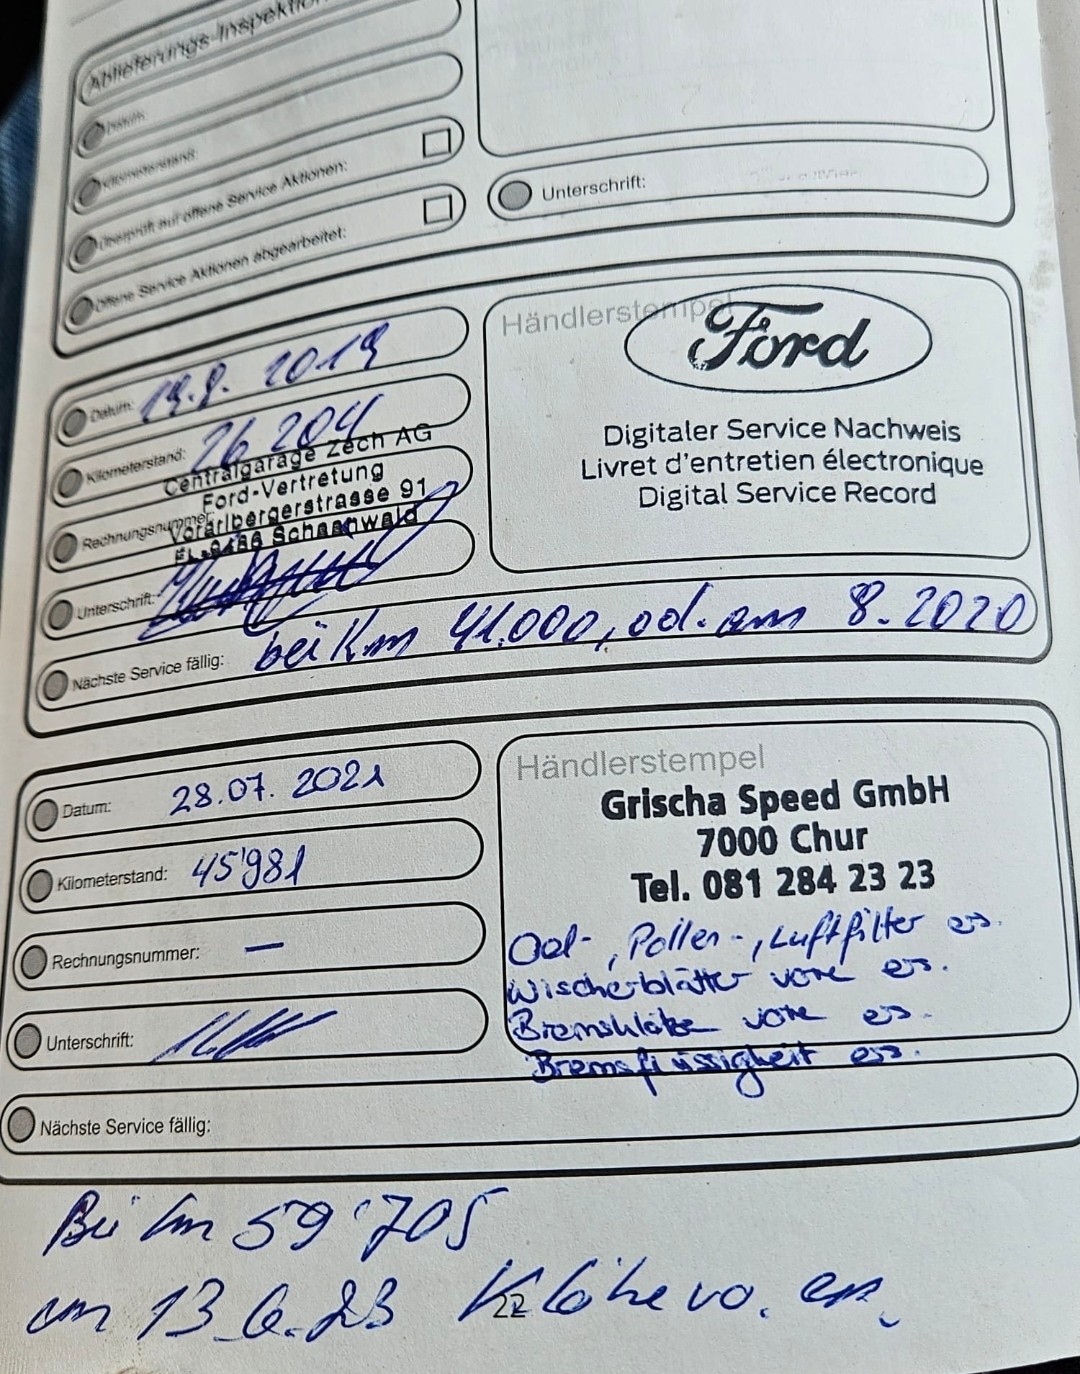 Ablieferungs-Inspektion
Datum:
Kilometerstand:
Überprüft auf offene Service Aktionen:
Offene Service Aktionen abgearbeitet:
Unterschrift:
Datum: 19.8. 2019
Kilometerstand: 26 204
Centralgarage Zech AG
Ford-Vertretung
Rechnungsnummer:
Vorarlbergerstrasse 91
FL-9486 Schaanwald
Unterschrift:
Nächste Service fällig: bei Km 41.000, od. am 8.2020
Händlerstempel
Ford
Digitaler Service Nachweis
Livret d'entretien électronique
Digital Service Record
Datum: 28.07. 2021
Kilometerstand: 45'981
Rechnungsnummer: —
Unterschrift:
Händlerstempel
Grischa Speed GmbH
7000 Chur
Tel. 081 284 23 23
Oel-, Pollen-, Luftfilter ers.
Wischerblätter vorne ers.
Bremsklötze vorne ers.
Bremsflüssigkeit ers.
Nächste Service fällig:
Bei km 59'705
am 13.6.23 Klötze vo. ers.
22